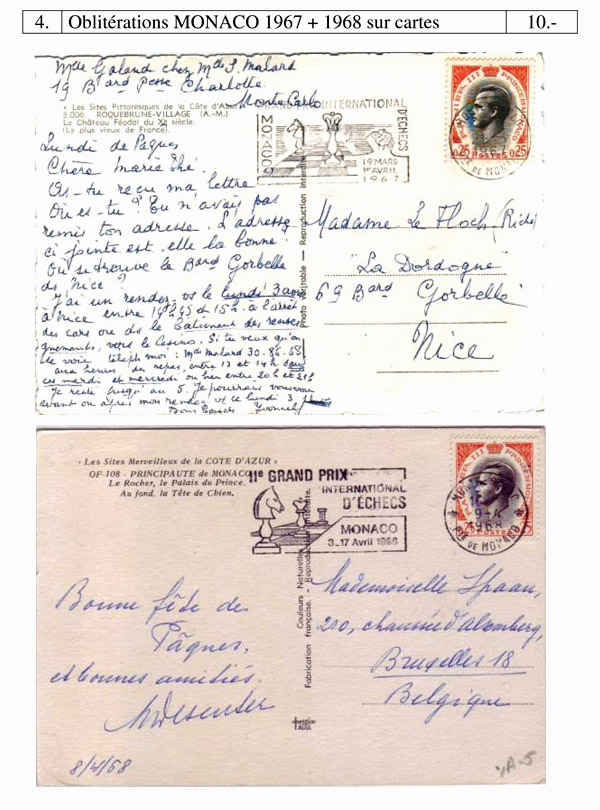 4. Oblitérations MONACO 1967 + 1968 sur cartes 10.-
Mde Galand chez Md S. Malard
19 Bard Psse Charlotte
Monte Carlo
« Les Sites Pittoresques de la Côte d'Azur
8.006. ROQUEBRUNE-VILLAGE (A.-M.)
Le Château Féodal du XI siècle.
(Le plus vieux de France).
Lundi de Pâques
Chère Marie Thé.
As-tu reçu ma lettre
Où es-tu? Tu n'avais pas
remis ton adresse. L'adresse
ci jointe est elle la bonne?
Où se trouve le Bard Gorbella
de Nice?
J'ai un rendez-vs le lundi 3
à Nice entre et 15h. à l'arrêt
des cars ou ds le bâtiment des rensei
gnements, vers le casino. Si tu veux
me voir téléph moi: Mde Malard 30-86-58
aux heures des repas, entre 13 et 14h
mardi et mercredi ou bien entre 20h et 21h
Je reste jusqu'au 5. Je pourrais
avant ou après mon rendez vs ce lundi 3
Bons baisers
GRAND PRIX INTERNATIONAL
D'ECHECS
MONACO
19 MARS
1er AVRIL
1967
RAINIER III PRINCE DE MONACO
0,25 POSTES 0,25
1967
PTE DE MONACO
Photo véritable — Reproduction interdite
Madame Le Floch
"La Dordogne"
69 Bard Gorbella
Nice
« Les Sites Merveilleux de la COTE D'AZUR »
OF-108 - PRINCIPAUTE de MONACO
Le Rocher, le Palais du Prince.
Au fond, la Tête de Chien.
11e GRAND PRIX
INTERNATIONAL
D'ÉCHECS
MONACO
3_17 Avril 1968
9-4
1968
PTE DE MONACO
Couleurs Naturelles
Fabrication française. - Reproduction interdite.
Bonne fête de
Pâques,
et bonnes amitiés.
8/4/68
Mademoiselle Spaan,
210, chaussée d'Alsemberg,
Bruxelles 18
Belgique